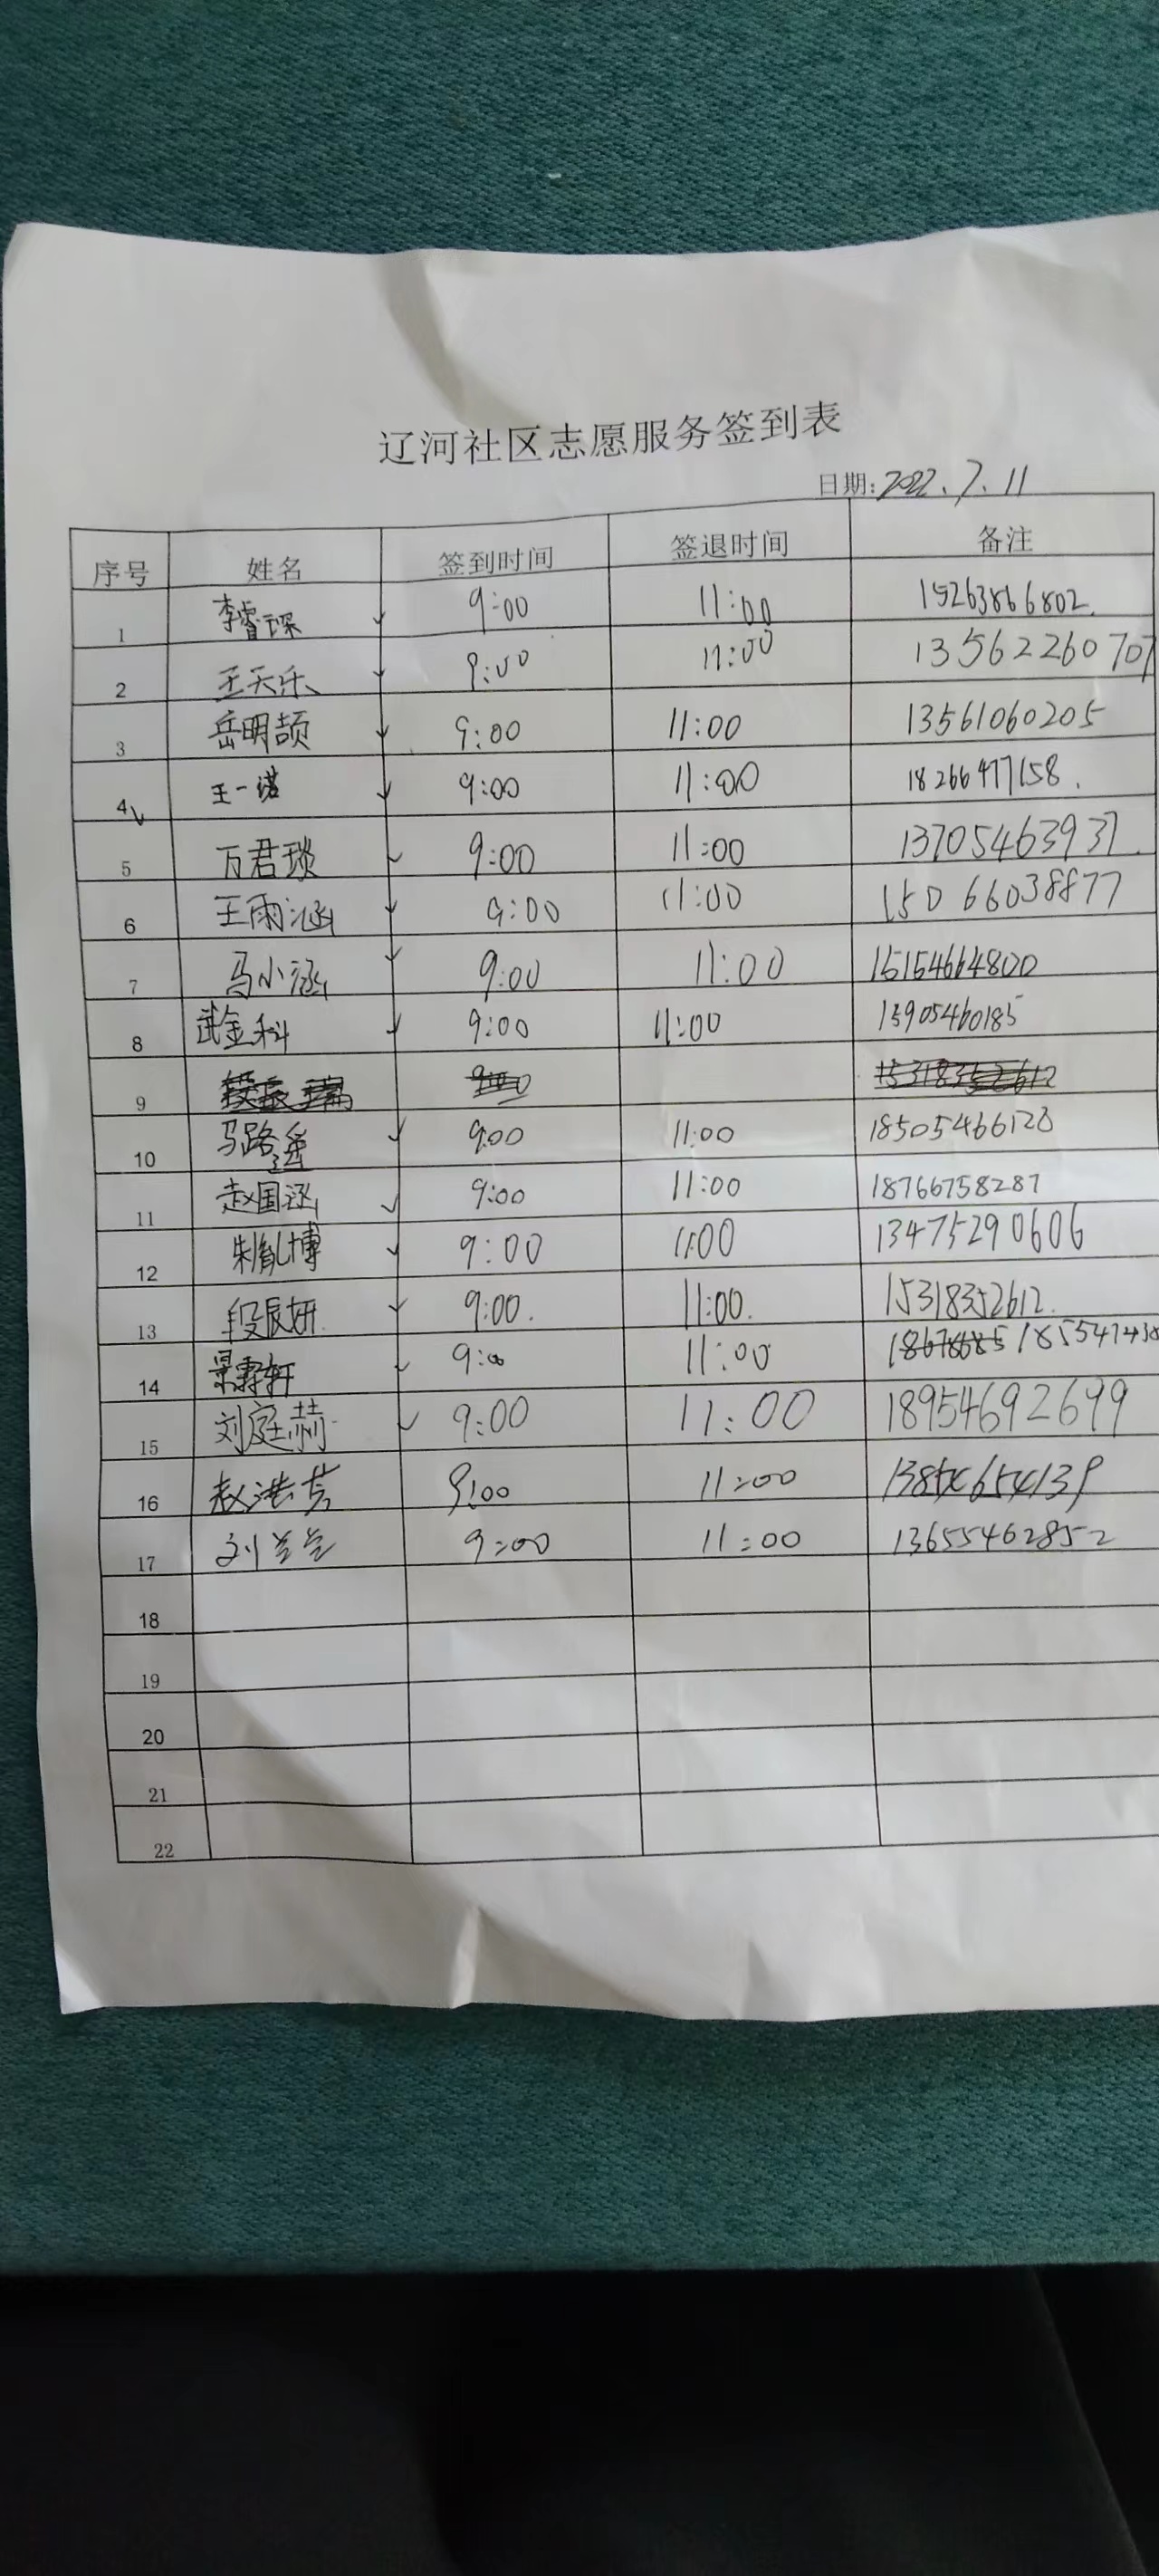 辽河社区志愿服务签到表
日期:2022.7.11
序号 姓名 签到时间 签退时间 备注
1 李睿琛 9:00 11:00 15263866802.
2 王天乐 9:00 11:00 13562260707
3 岳明颉 9:00 11:00 13561060205
4 王一诺 9:00 11:00 18266477158.
5 万君琰 9:00 11:00 13705463937.
6 王雨涵 9:00 11:00 15066038877
7 马小涵 9:00 11:00 15154664800
8 武金科 9:00 11:00 15905460185
9 15318352612
10 马路遥 9:00 11:00 18505466128
11 赵国涵 9:00 11:00 18766758287
12 朱胤博 9:00 11:00 13475290606
13 段辰妍 9:00. 11:00. 15318352612.
14 景霖轩 9:00 11:00
15 刘庭赫 9:00 11:00 18954692699
16 赵洪芸 9:00 11:00 13854654139
17 刘兰兰 9:00 11:00 13655462852
18
19
20
21
22